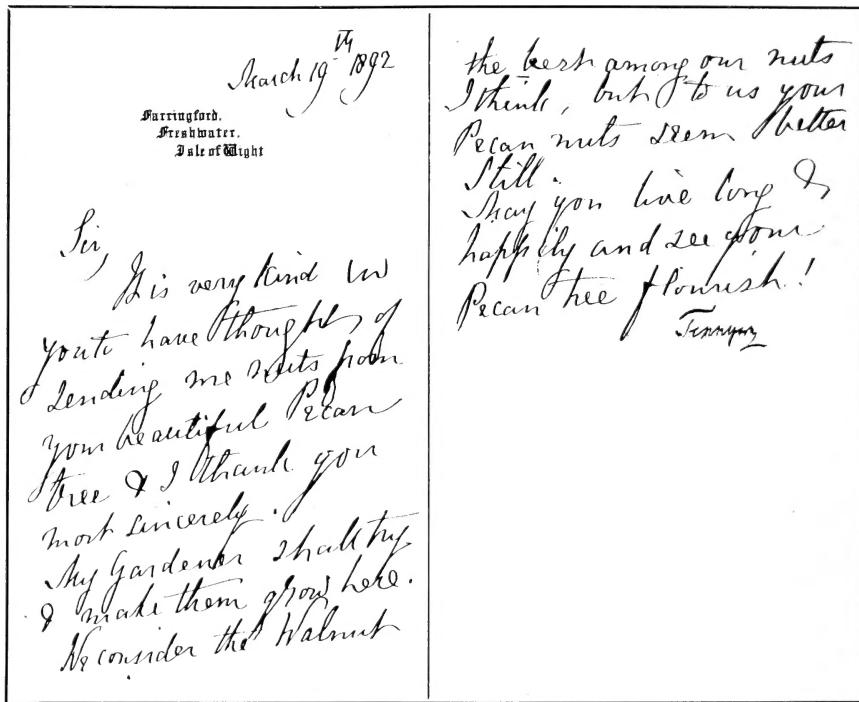 March 19th 1892
Farringford,
Freshwater,
Isle of Wight
Sir,
It is very kind in
you to have thought of
sending me nuts from
your beautiful Pecan
tree & I thank you
most sincerely.
My Gardener shall try
& make them grow here.
We consider the Walnut
the best among our nuts
I think, but to us your
Pecan nuts seem better
still.
May you live long &
happily and see your
Pecan tree flourish!
Tennyson